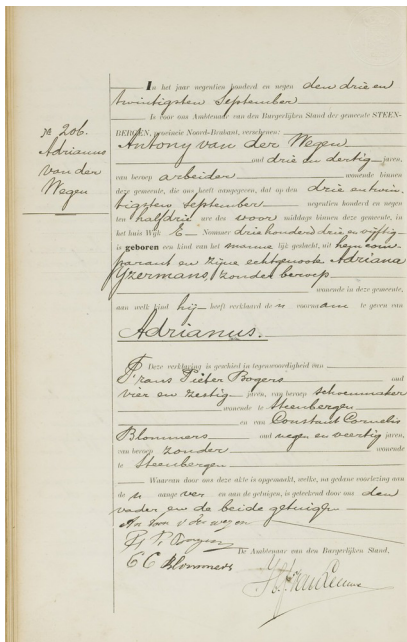 № 206.
Adrianus
van der
Wegen
In het jaar negentien honderd en negen den drie en
twintigsten September
is voor ons Ambtenaar van den Burgerlijken Stand der gemeente STEEN-
BERGEN, provincie Noord-Brabant, verschenen:
Antony van der Wegen
oud drie en dertig jaren,
van beroep arbeider wonende binnen
deze gemeente, die ons heeft aangegeven, dat op den drie en twin-
tigsten September negentien honderd en negen
ten half drie ure des voor middags binnen deze gemeente, in
het huis Wijk E Nummer drie honderd drie en vijftig
is geboren een kind van het manne lijk geslacht, uit hem com-
parant en zijne echtgenoote Adriana
IJzermans, zonder beroep
wonende in deze gemeente,
aan welk kind hij heeft verklaard de n voornaam te geven van
Adrianus.
Deze verklaring is geschied in tegenwoordigheid van
Frans Pieter Bogers oud
vier en zestig jaren, van beroep schoenmaker
wonende te Steenbergen
en van Constant Cornelis
Blommers oud negen en veertig jaren,
van beroep zonder wonende
te Steenbergen
Waarvan door ons deze akte is opgemaakt, welke, na gedane voorlezing aan
de n aange ver en aan de getuigen, is geteekend door ons den
vader en de beide getuigen
v der wegen
F. P. Bogers
De Ambtenaar van den Burgerlijken Stand,
C C Blommers